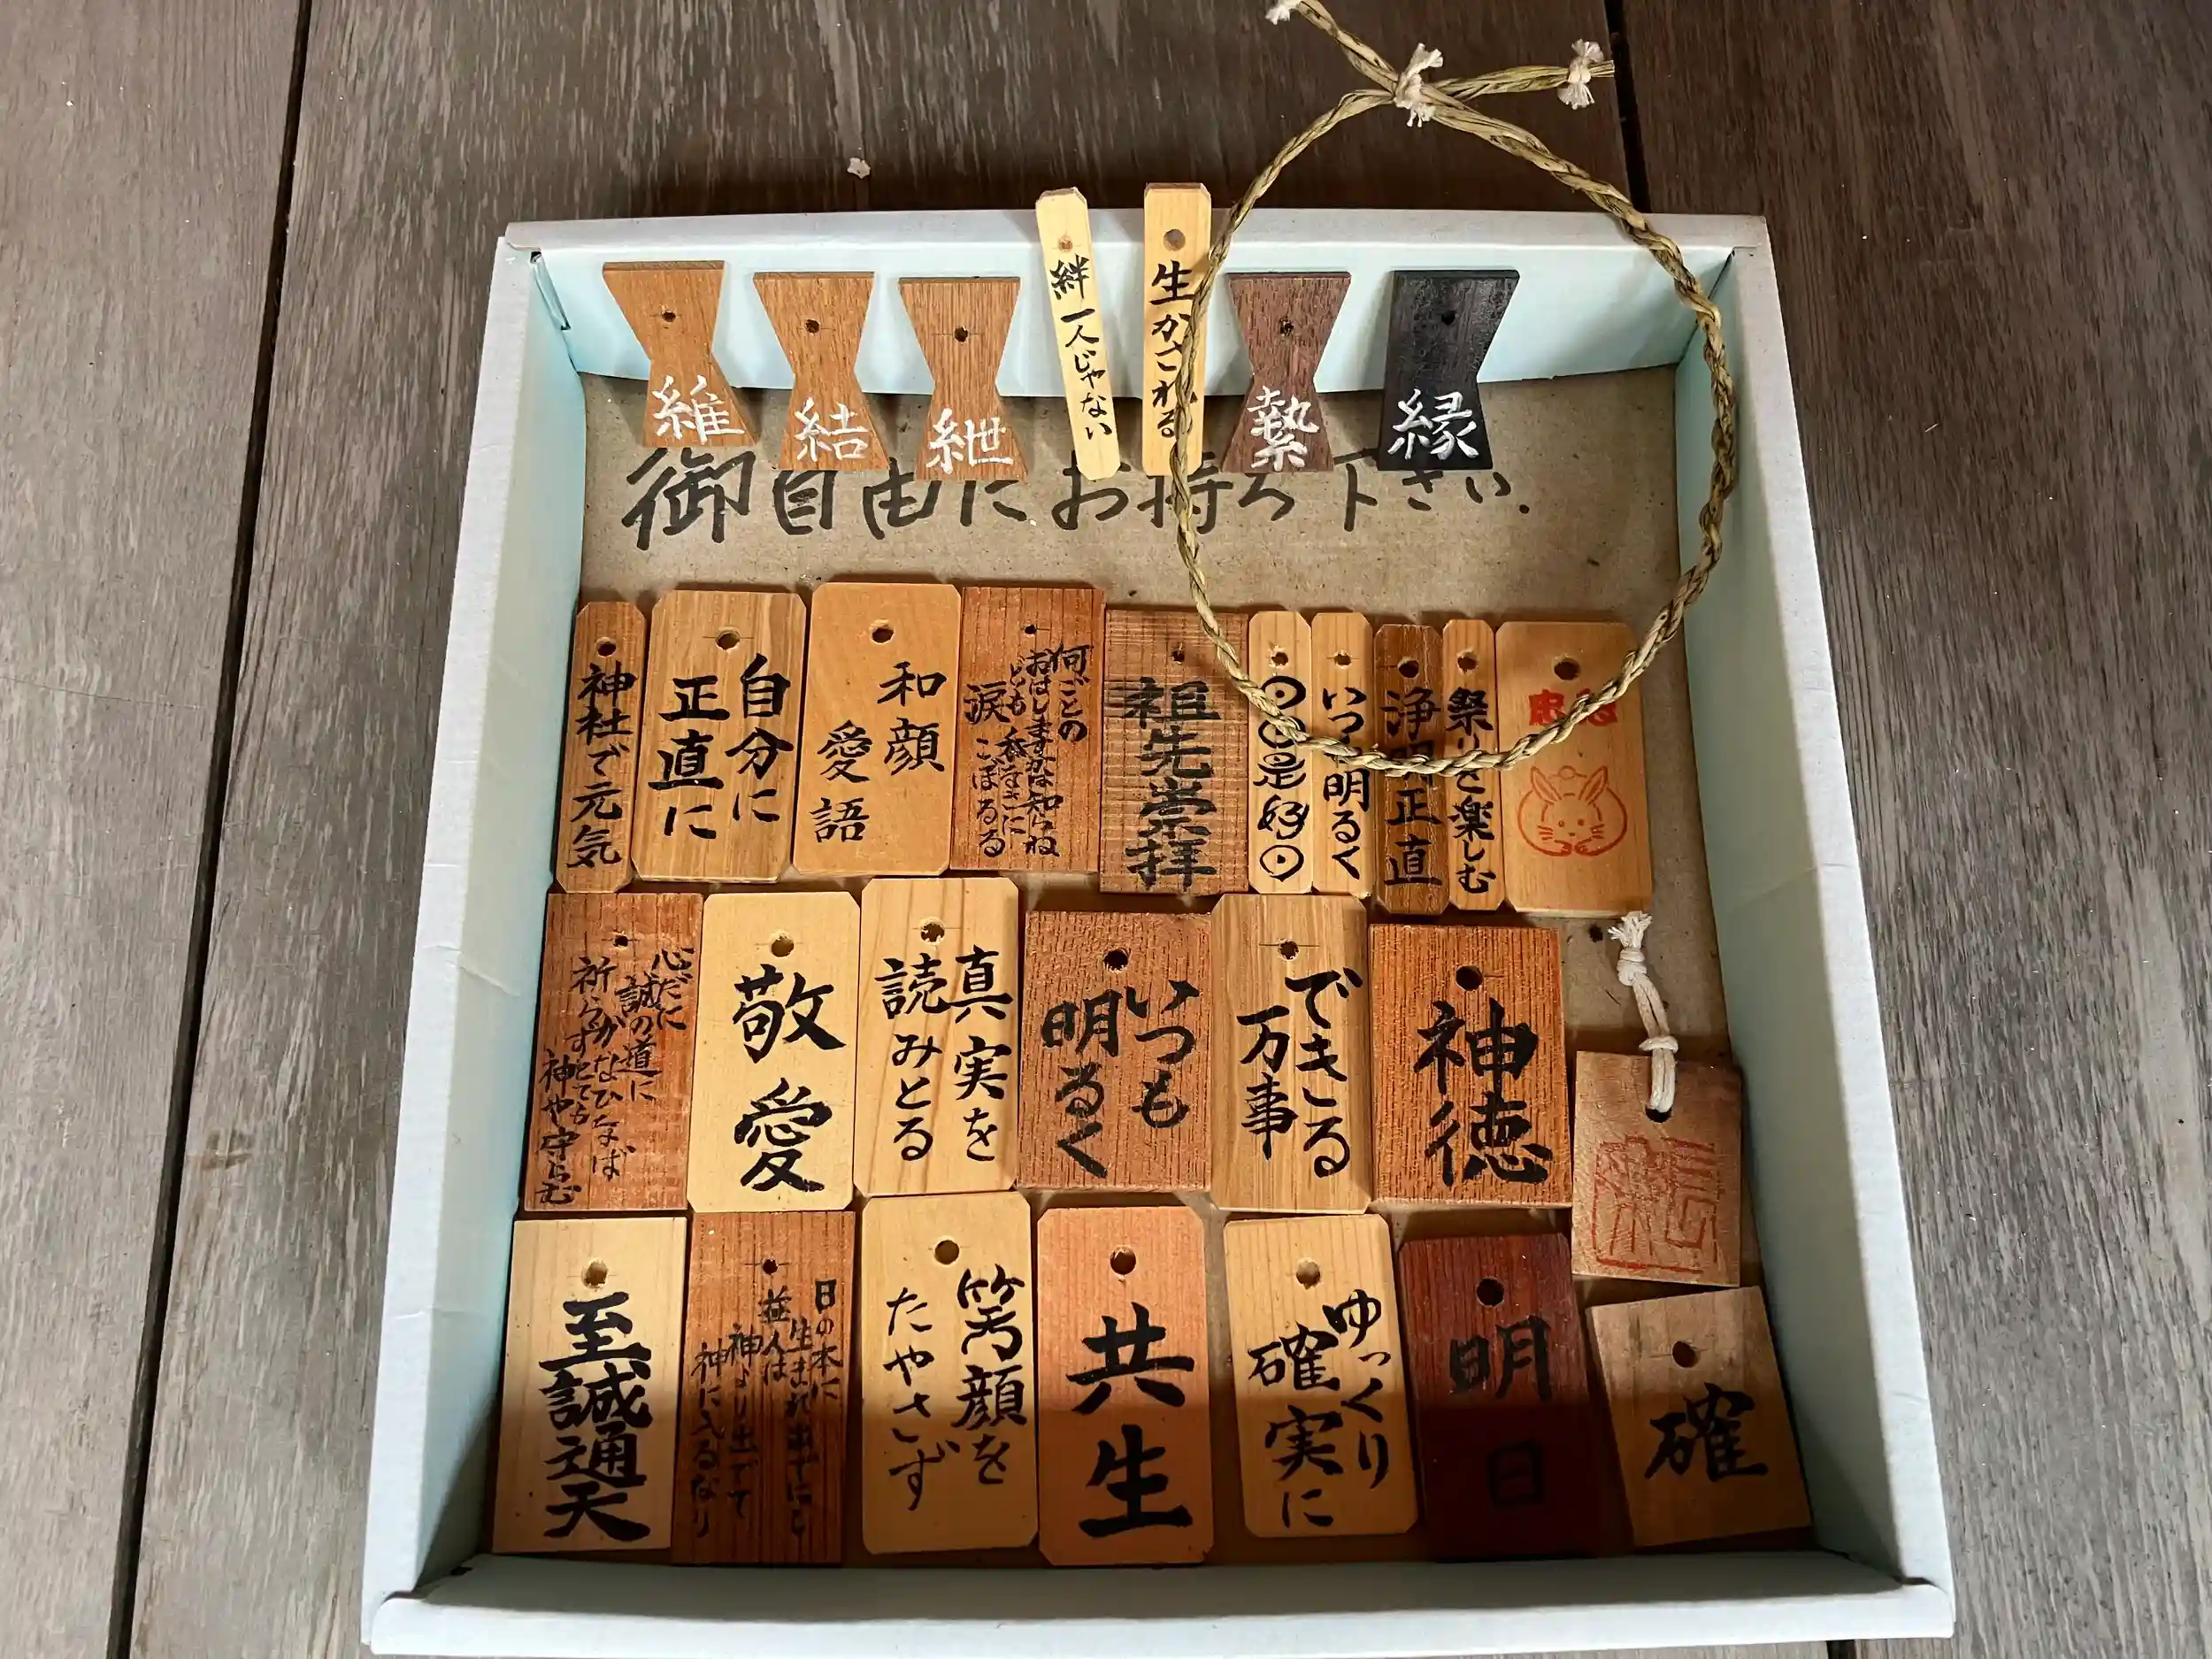 維
結
紲
絆 一人じゃない
生かされる
縶
縁
御自由にお持ち下さい.
神社で元気
自分に
正直に
和顔
愛語
何ごとの
おはしますかは知らね
ども 忝なさに
涙こぼるる
祖先崇拝
是好
いつも明るく
浄明正直
祭りを楽しむ
心だに
誠の道に
かなひなば
祈らずとても
神や守らむ
敬愛
真実を
読みとる
いつも
明るく
できる
万事
神徳
至誠通天
日の本に
生まれ出でにし
益人は
神より出でて
神に入るなり
笑顔を
たやさず
共生
ゆっくり
確実に
明日
確